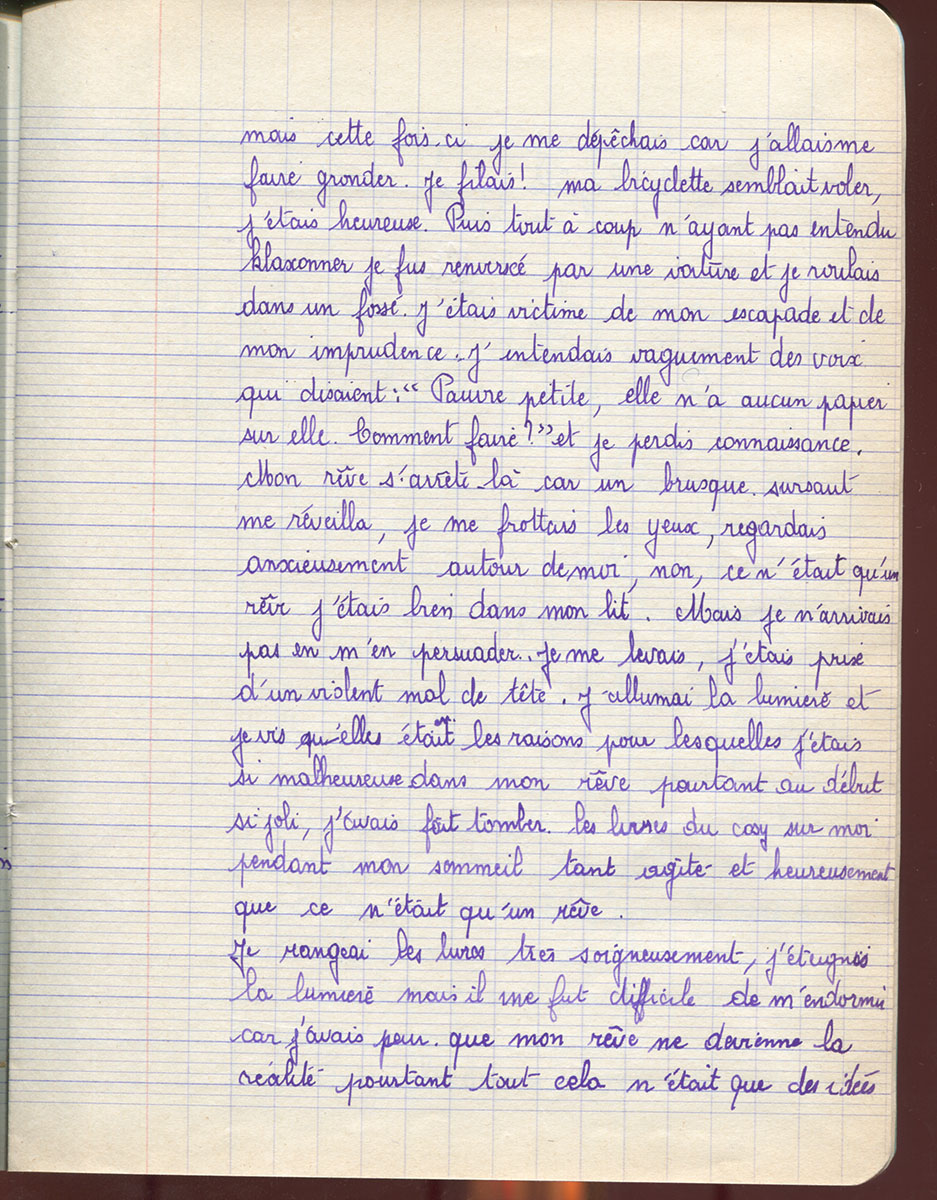 mais cette fois-ci je me dépêchais car j'allais me
faire gronder. Je filais! ma bicyclette semblait voler,
j'étais heureuse. Puis tout à coup n'ayant pas entendu
klaxonner je fus renversé par une voiture et je roulais
dans un fossé. J'étais victime de mon escapade et de
mon imprudence. J'entendais vaguement des voix
qui disaient: "Pauvre petite, elle n'a aucun papier
sur elle. Comment faire?" et je perdis connaissance.
Mon rêve s'arrête là car un brusque sursaut
me réveilla, je me frottais les yeux, regardais
anxieusement autour de moi, non, ce n'était qu'un
rêve j'étais bien dans mon lit. Mais je n'arrivais
pas en m'en persuader. Je me levais, j'étais prise
d'un violent mal de tête. J'allumai la lumière et
je vis qu'elles étaient les raisons pour lesquelles j'étais
si malheureuse dans mon rêve pourtant au début
si joli, j'avais fait tomber les livres du cosy sur moi
pendant mon sommeil tant agité et heureusement
que ce n'était qu'un rêve.
Je rangeai les livres très soigneusement, j'éteignis
la lumière mais il me fut difficile de m'endormir
car j'avais peur que mon rêve ne devienne la
réalité pourtant tout cela n'était que des idées